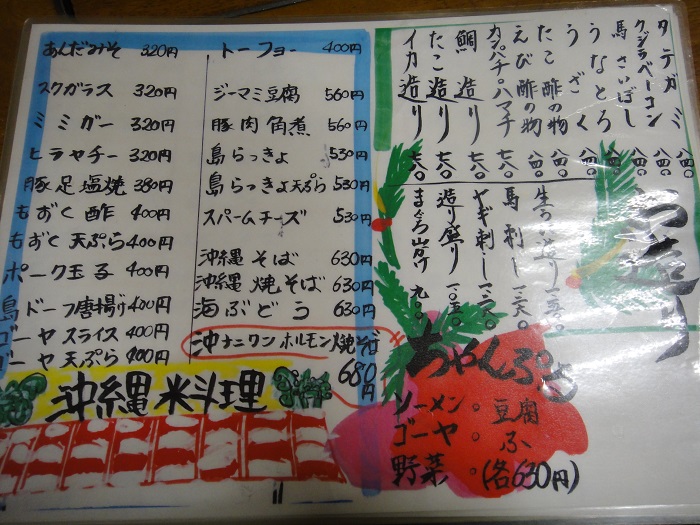 あんだみそ 320円
スクガラス 320円
ミミガー 320円
ヒラヤチー 320円
豚足塩焼 380円
もずく酢 400円
もずく天ぷら 400円
ポーク玉子 400円
島ドーフ唐揚げ 400円
ゴーヤスライス 400円
ゴーヤ天ぷら 400円
トーフヨー 400円
ジーマミ豆腐 560円
豚肉角煮 560円
島らっきょ 530円
島らっきょ天ぷら 530円
スパームチーズ 530円
沖縄そば 630円
沖縄焼そば 630円
海ぶどう 630円
沖ナニワンホルモン焼そば 680円
沖縄料理
造り
タテガミ 八四〇
クジラベーコン 八四〇
馬さいぼし 八四〇
うなとろ 八四〇
うざく 八四〇
たこ酢の物 八四〇
えび酢の物 八四〇
カンパチ。ハマチ 七八〇
鯛造り 七八〇
たこ造り 七八〇
イカ造り 七八〇
馬刺し
ヤギ刺し
造り盛り 一〇五〇
まぐろ山かけ 九〇〇
ちゃんぷる
ソーメン。豆腐
ゴーヤ。ふ
野菜。(各630円)